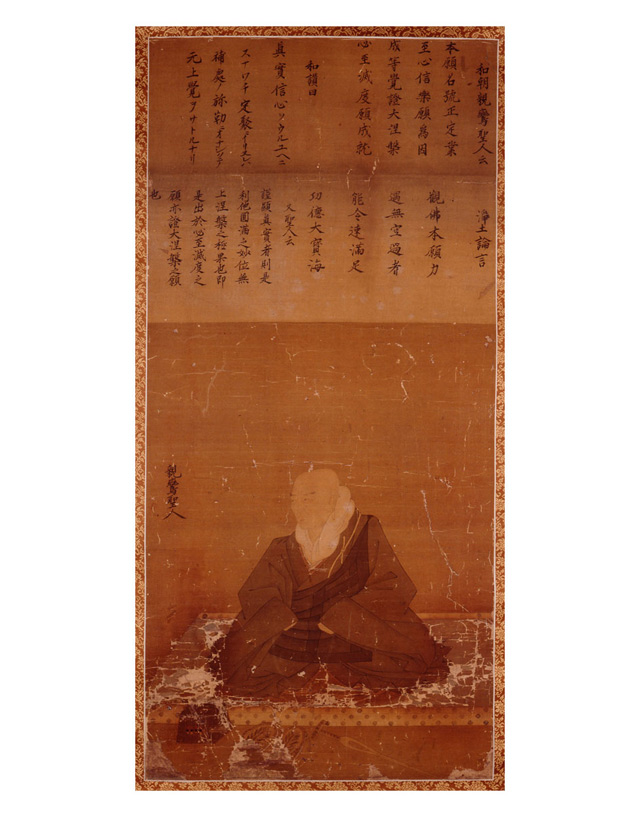 和朝親鸞聖人云
本願名號正定業
至心信樂願爲因
成等覺證大涅槃
必至滅度願成就
和讃曰
眞實信心ヲウルユヘニ
スナワチ定聚ニイリヌレハ
補處ノ弥勒ニオナシクテ
无上覺ヲサトルナリ
淨土論言
觀佛本願力
遇無空過者
能令速滿足
功德大寳海
又聖人云
謹顯眞實者則是
利他圓滿之妙位無
上涅槃之極果也即
是出於必至滅度之
願亦證大涅槃之願
也
親鸞聖人